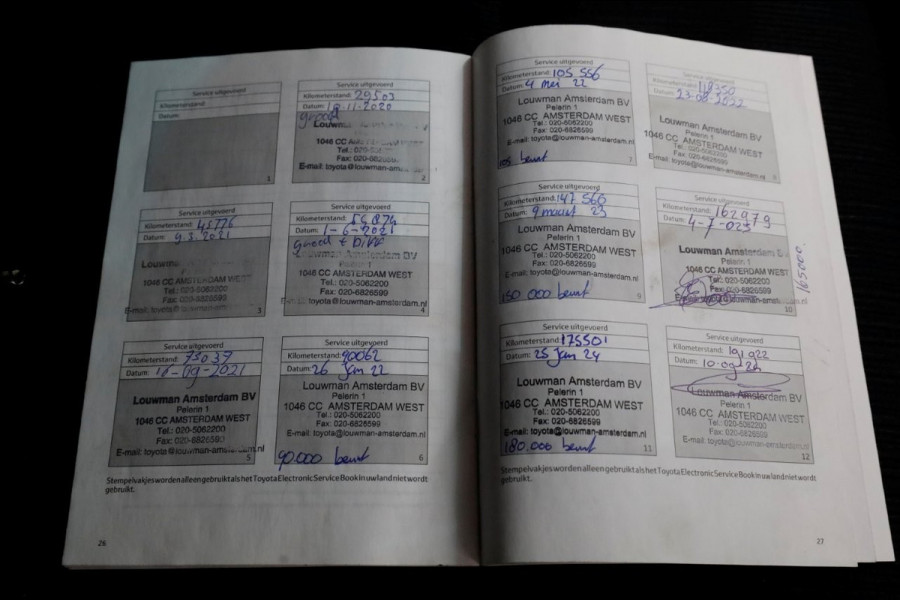 Service uitgevoerd
Kilometerstand:
Datum:
1
Service uitgevoerd
Kilometerstand: 29503
Datum: 10-11-2020
groot
Louw
1046 CC AMSTERDAM WEST
Tel.: 020-
Fax: 020-6826599
E-mail: toyota@louwman-am
2
Service uitgevoerd
Kilometerstand: 45776
Datum: 9.3.2021
Louw
1046 CC AMSTERDAM WE
Tel.: 020-5062200
Fax: 020-6826599
E-mail: toyota@louwman-
3
Service uitgevoerd
Kilometerstand:
Datum: 1-6-2021
Amsterdam BV
1046 CC AMSTERDAM WEST
Tel.: 020-5062200
Fax: 020-6826599
E-mail: toyota@louwman-amsterdam.nl
4
Service uitgevoerd
Kilometerstand: 73039
Datum: -09-2021
Louwman Amsterdam BV
Pelerin 1
1046 CC AMSTERDAM WEST
Tel.: 020-5062200
Fax: 020-6826599
E-mail: toyota@louwman-amsterdam
5
Service uitgevoerd
Kilometerstand: 90062
Datum: 26 Jan 22
Louwman Amsterdam BV
Pelerin 1
1046 CC AMSTERDAM WEST
Tel.: 020-5062200
Fax: 020-6826599
E-mail: toyota@louwman-amsterdam.nl
90.000 beurt
6
Stempelvakjes worden alleen gebruikt als het Toyota Electronic Service Book in uw land niet wordt
gebruikt.
26
Service uitgevoerd
Kilometerstand: 105 556
Datum: 4 mei 22
Louwman Amsterdam BV
Pelerin 1
1046 CC AMSTERDAM WEST
Tel.: 020-5062200
Fax: 020-6826599
E-mail: toyota@louwman-amsterdam.nl
105 beurt
7
Service uitgevoerd
Kilometerstand: 118350
Datum: 23-08-2022
Louwman Amsterdam BV
Pelerin 1
1046 CC AMSTERDAM WEST
Tel.: 020-5062200
Fax: 020-6826599
E-mail: toyota@louwman-amsterdam.nl
Service uitgevoerd
Kilometerstand: 147 560
Datum: 9 maart 23
Louwman Amsterdam BV
Pelerin 1
1046 CC AMSTERDAM WEST
Tel.: 020-5062200
Fax: 020-6826599
E-mail: toyota@louwman-amsterdam.nl
150 000 beurt
9
Service uitgevoerd
Kilometerstand: 162979
Datum: 4-7-023
Louwman Amsterdam B
Pelerin 1
1046 CC AMSTERDAM WEST
Tel.: 020-5062200
Fax: 020-6826599
louwman-amsterdam.nl
10
165000
Service uitgevoerd
Kilometerstand: 175501
Datum: 25 Jan 24
Louwman Amsterdam BV
Pelerin 1
1046 CC AMSTERDAM WEST
Tel.: 020-5062200
Fax: 020-6826599
E-mail: toyota@louwman-amsterdam.nl
180.000 beurt
11
Service uitgevoerd
Kilometerstand: 191922
Datum: 10-09-24
Louwman Amsterdam BV
Pelerin 1
1046 CC AMSTERDAM WEST
Tel.: 020-5062200
Fax: 020-6826599
E-mail: toyota@louwman-amsterdam.nl
12
Stempelvakjes worden alleen gebruikt als het Toyota Electronic Service Book in uw land niet wordt
gebruikt.
27